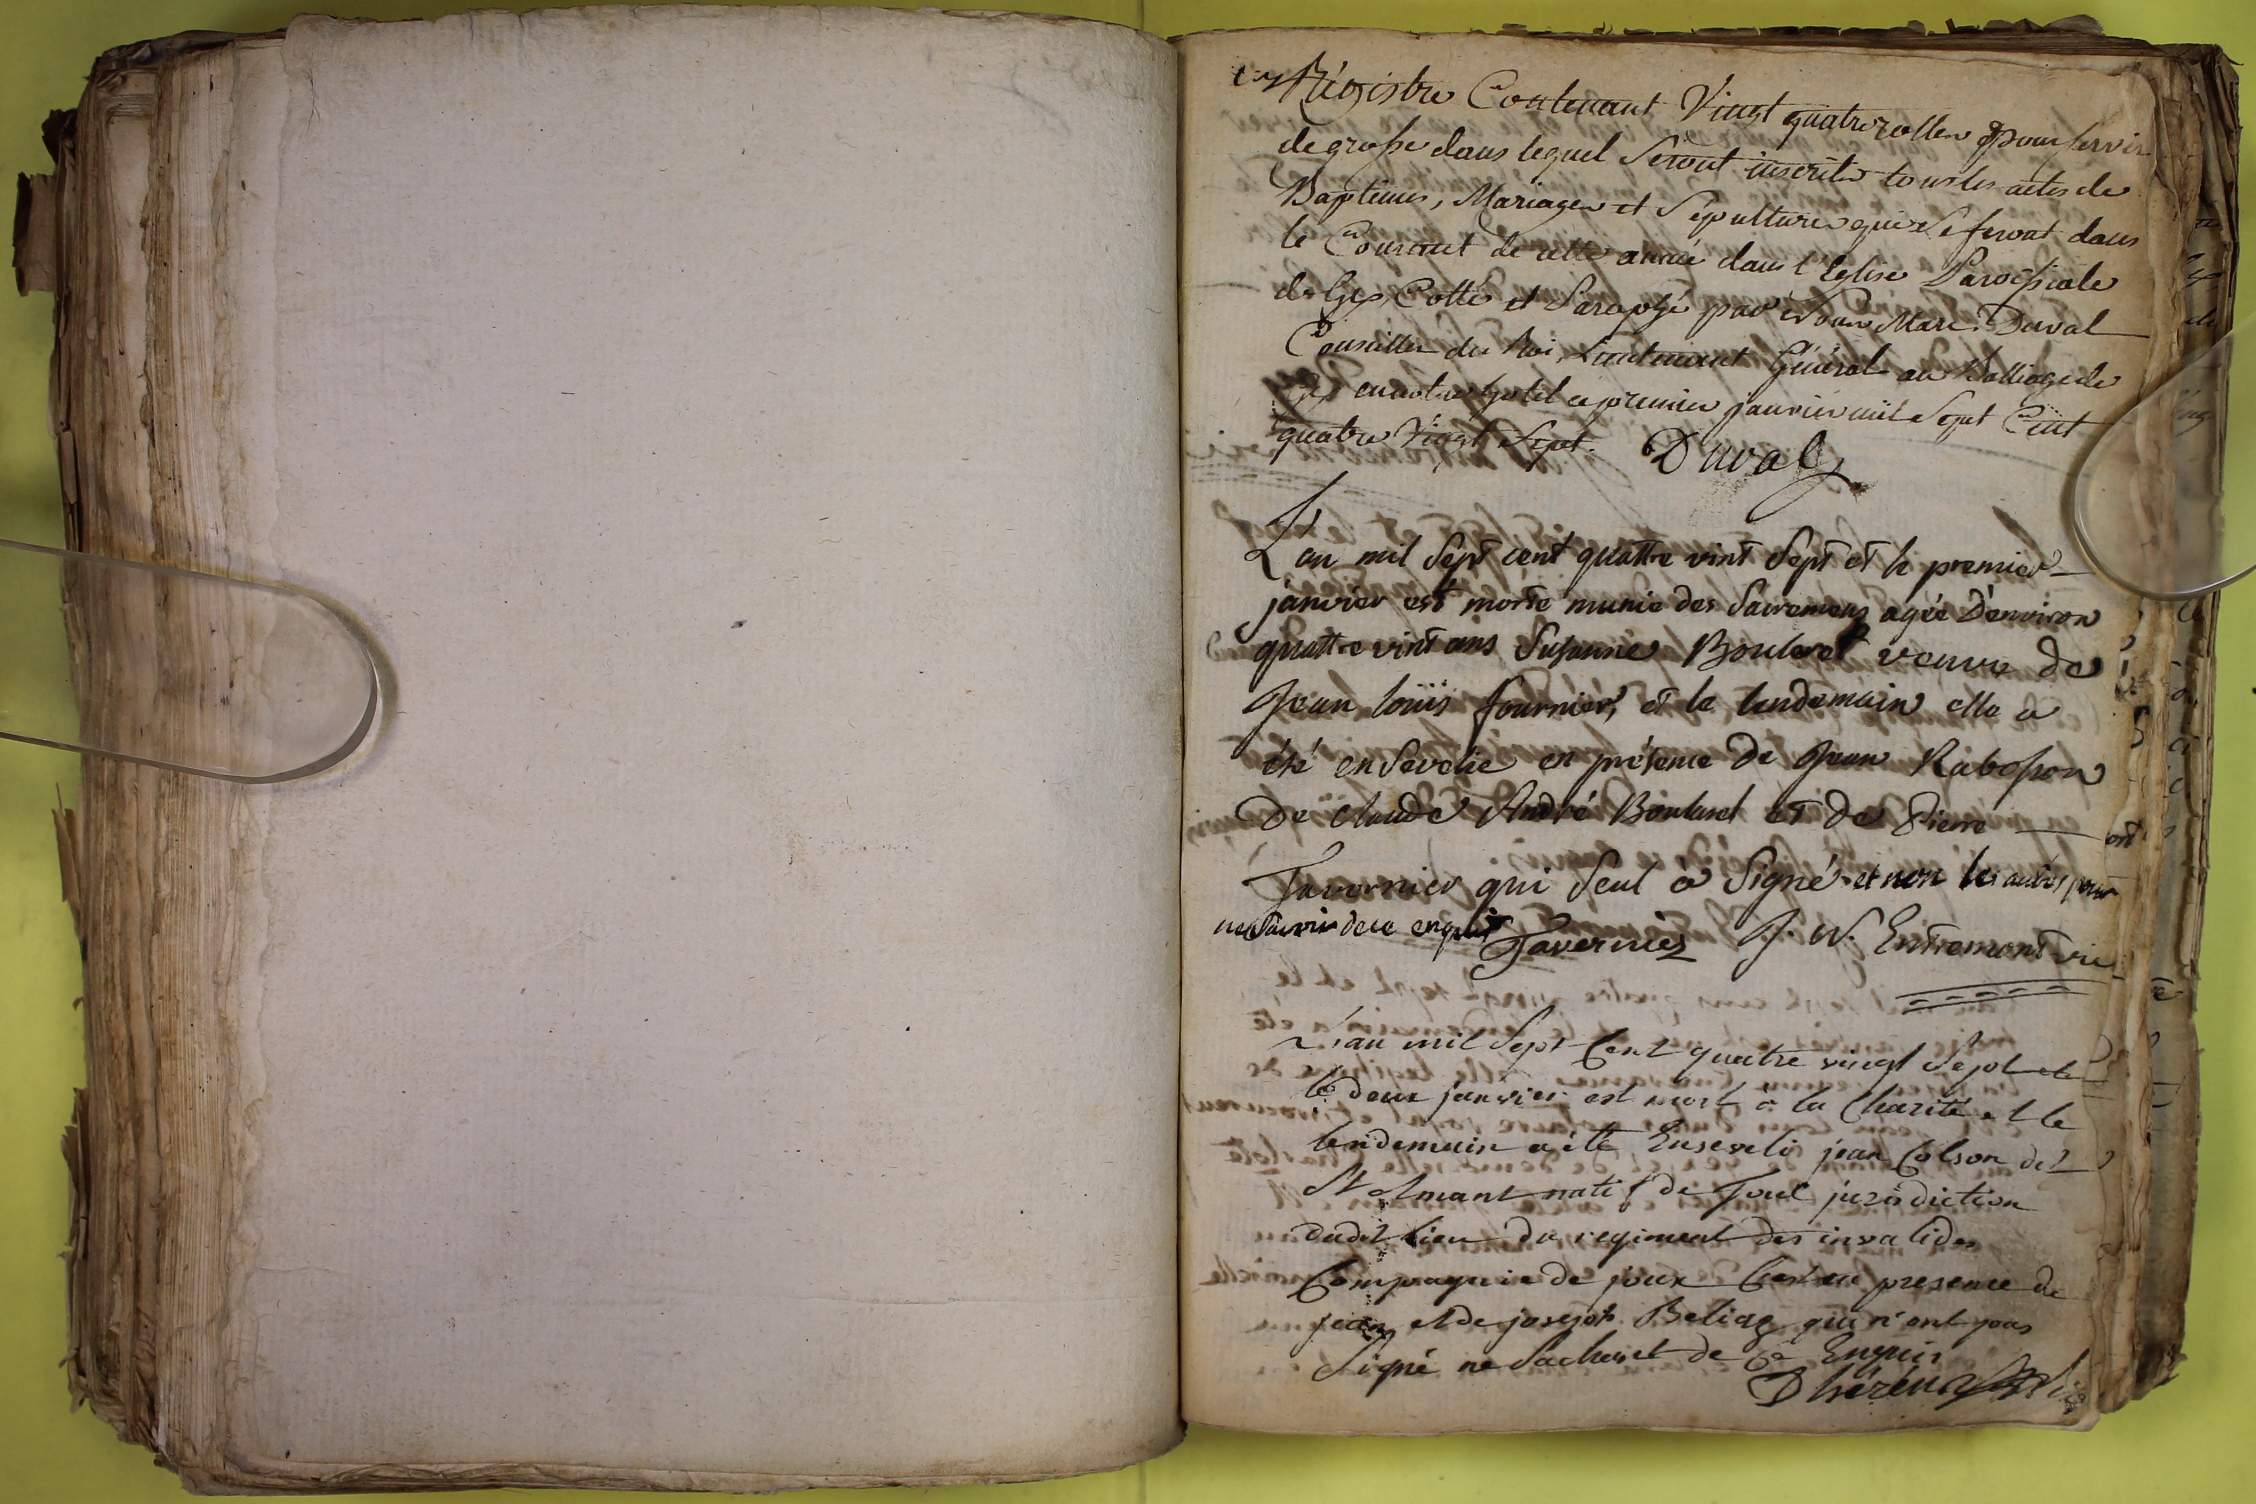 Régistre Contenant Vingt quatre rolles pour servir
de grosse dans lequel seront inscrits tous les actes de
Baptêmes, Mariages et Sépultures qui se feront dans
le Courant de cette année dans l'Eglise Paroissiale
de Gex, Cotté et Paraphé par Nous Marc Duval
Conseiller du Roi, Lieutenant Général au Balliage de
Gex en notre hotel ce premier janvier mil Sept Cent
quatre Vingt Sept. Duval
L'an mil sept cent quattre vint sept et le premier
janvier est morte munie des Sacremens agée d'environ
quattre vint ans Susanne Bouleret veuve de
Jean loüis fournier, et le lendemain elle a
été ensevelie en présence de Jean Rabosson
De claude André Bouleret et de Pierre
Tavernier qui seul a signé et non les autres pour
ne savoir de ce enquis Tavernier J. N. Entremont vic
L'an mil Sept Cent quatre vingt Sept et
le deux janvier est mort à la Charité et le
lendemain a été Enseveli jean Colson dit
St Amant natif de Toul jurisdiction
dudit lieu du regiment des invalides
Compagnie de joux C'est en presence de
jean et de joseph Beliaz qui n'ont pas
Signé ne Sachant de Ce Enquis